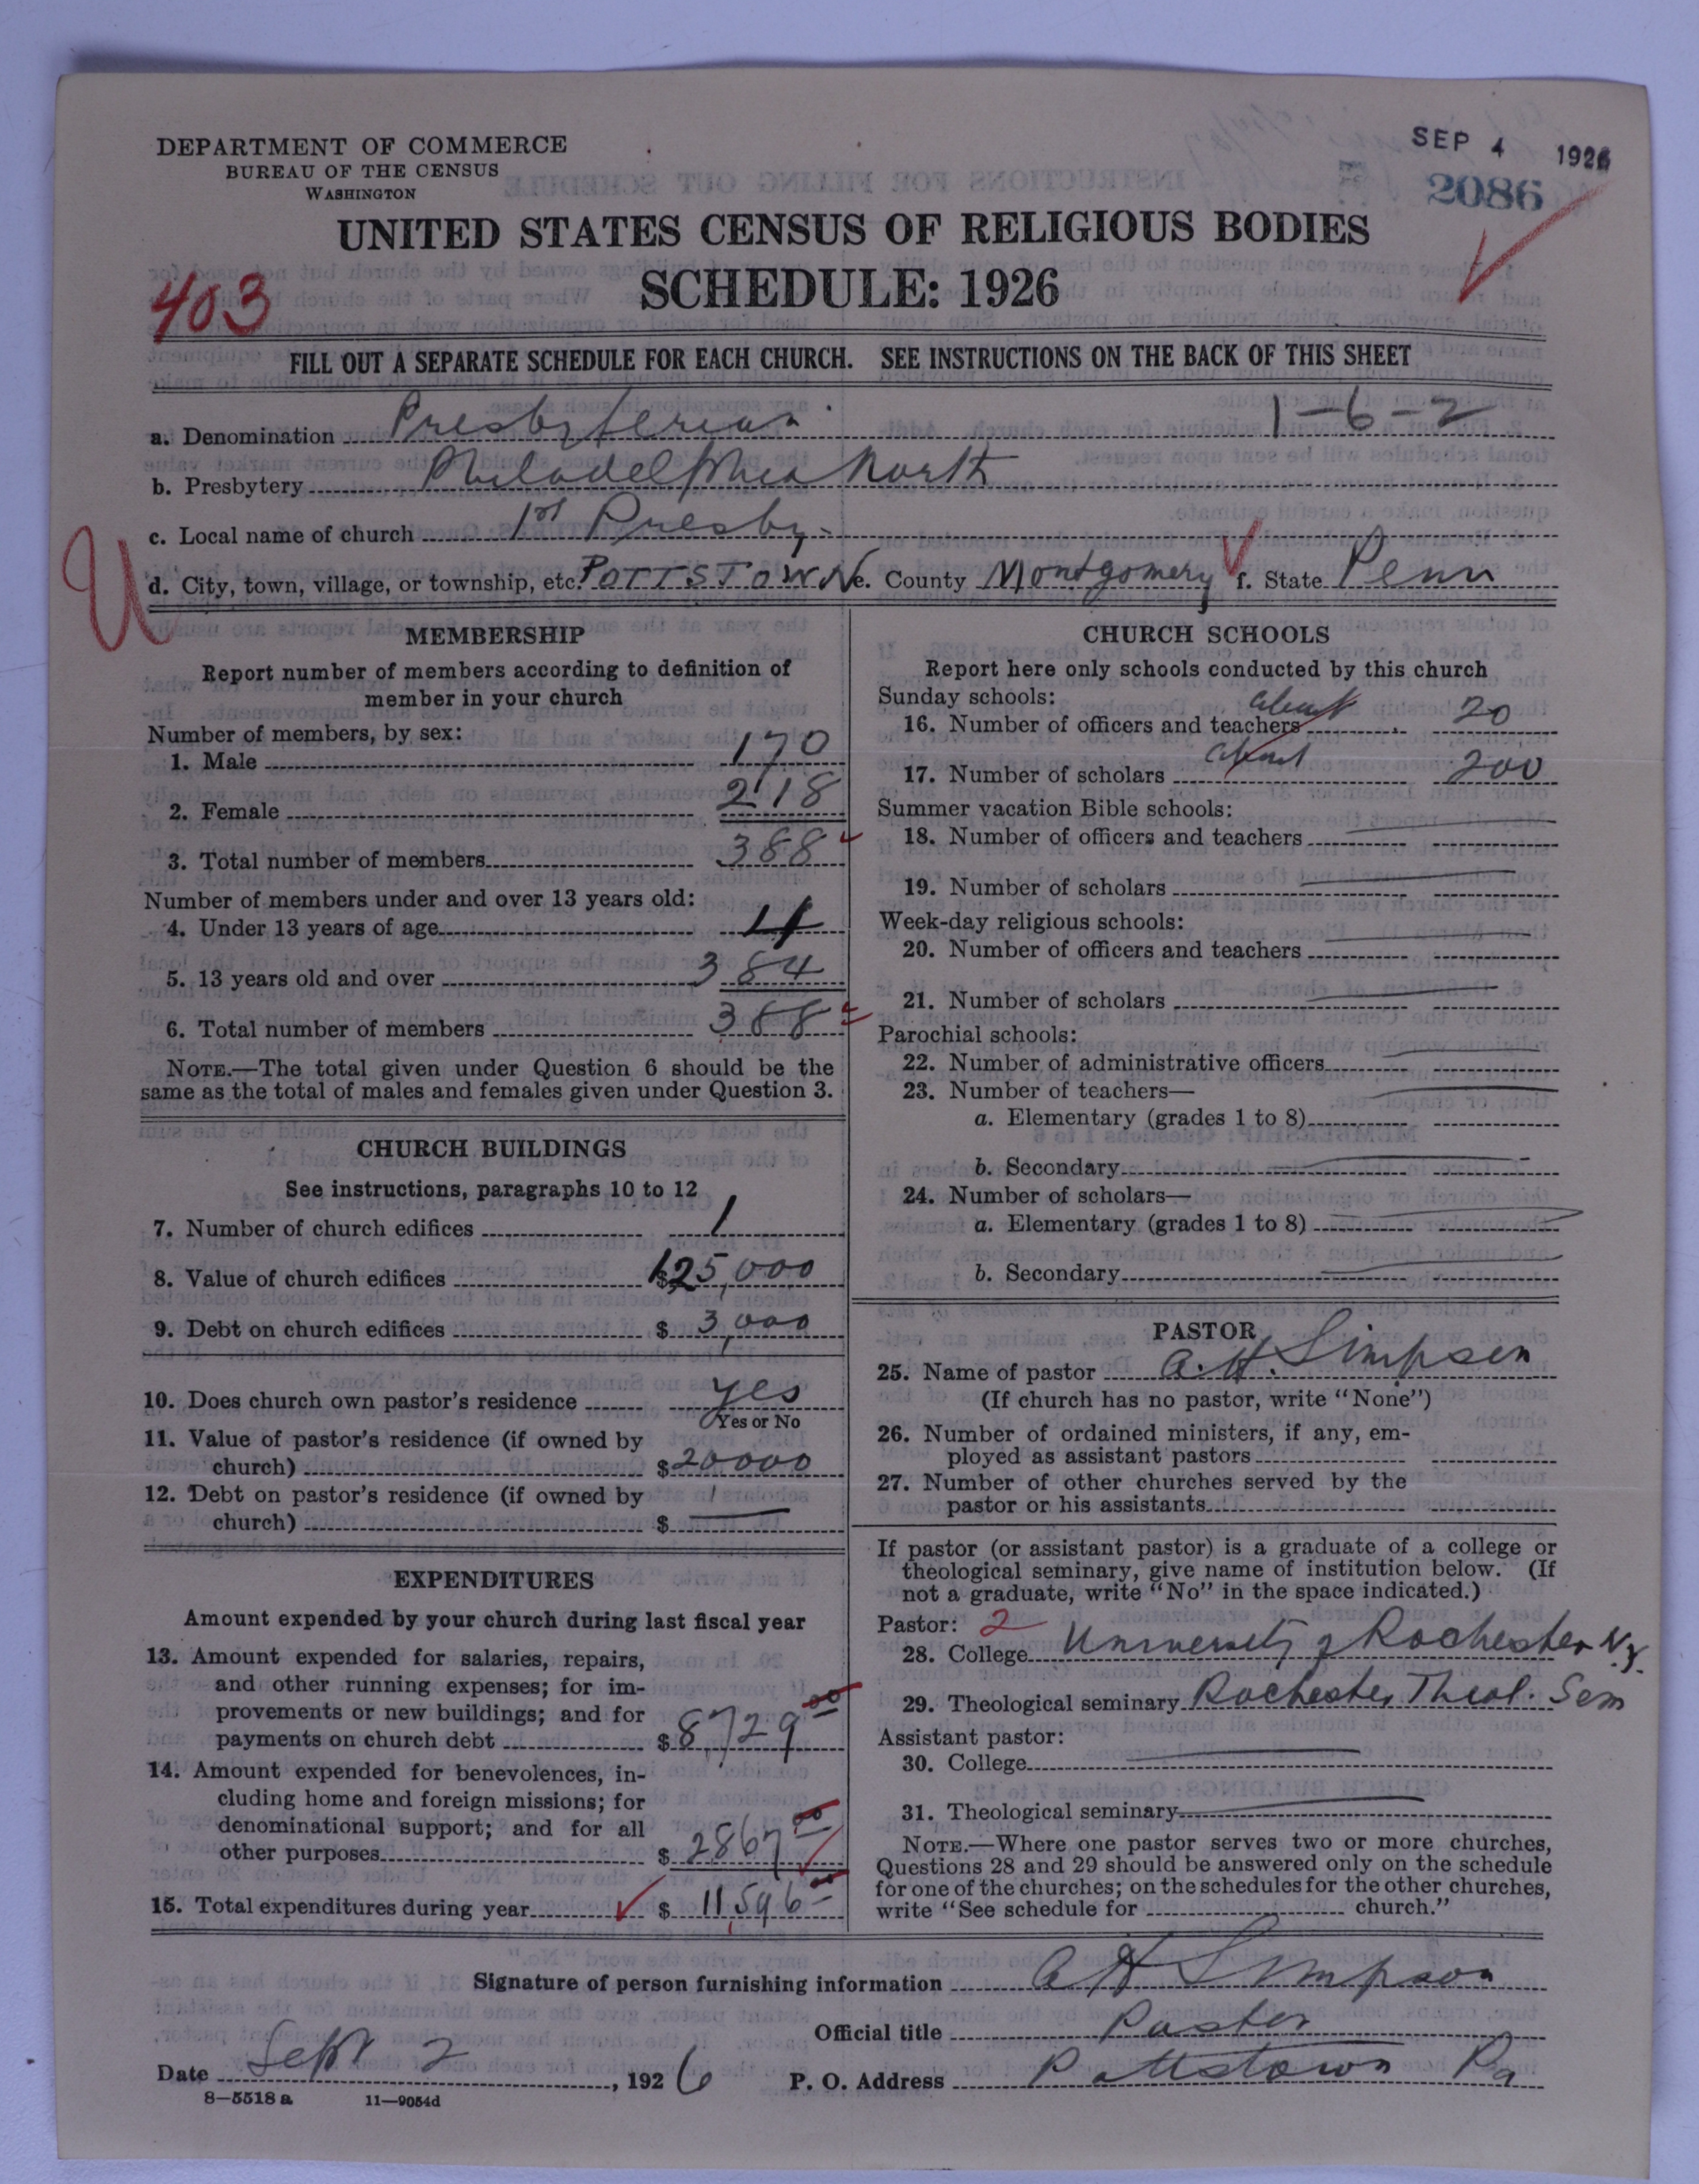 DEPARTMENT OF COMMERCE
BUREAU OF THE CENSUS
WASHINGTON
SEP 4 1926
2086
UNITED STATES CENSUS OF RELIGIOUS BODIES
SCHEDULE: 1926
403
FILL OUT A SEPARATE SCHEDULE FOR EACH CHURCH. SEE INSTRUCTIONS ON THE BACK OF THIS SHEET
a. Denomination Presbyterian 1-6-2
b. Presbytery Philadelphia North
c. Local name of church 1st Presby.
U
d. City, town, village, or township, etc. POTTSTOWN e. County Montgomery f. State Penn
MEMBERSHIP
Report number of members according to definition of
member in your church
Number of members, by sex:
1. Male 170
2. Female 218
3. Total number of members 388
Number of members under and over 13 years old:
4. Under 13 years of age 4
5. 13 years old and over 384
6. Total number of members 388
NOTE.—The total given under Question 6 should be the
same as the total of males and females given under Question 3.
CHURCH BUILDINGS
See instructions, paragraphs 10 to 12
7. Number of church edifices 1
8. Value of church edifices $125,000
9. Debt on church edifices $3,000
10. Does church own pastor's residence yes
Yes or No
11. Value of pastor's residence (if owned by
church) $20000
12. Debt on pastor's residence (if owned by
church) $
EXPENDITURES
Amount expended by your church during last fiscal year
13. Amount expended for salaries, repairs,
and other running expenses; for im-
provements or new buildings; and for
payments on church debt $8,729 00
14. Amount expended for benevolences, in-
cluding home and foreign missions; for
denominational support; and for all
other purposes $2867 00
15. Total expenditures during year $11,596 00
CHURCH SCHOOLS
Report here only schools conducted by this church
Sunday schools:
16. Number of officers and teachers about 20
17. Number of scholars about 200
Summer vacation Bible schools:
18. Number of officers and teachers
19. Number of scholars
Week-day religious schools:
20. Number of officers and teachers
21. Number of scholars
Parochial schools:
22. Number of administrative officers
23. Number of teachers—
a. Elementary (grades 1 to 8)
b. Secondary
24. Number of scholars—
a. Elementary (grades 1 to 8)
b. Secondary
PASTOR
25. Name of pastor A. H. Simpson
(If church has no pastor, write "None")
26. Number of ordained ministers, if any, em-
ployed as assistant pastors
27. Number of other churches served by the
pastor or his assistants
If pastor (or assistant pastor) is a graduate of a college or
theological seminary, give name of institution below. (If
not a graduate, write "No" in the space indicated.)
Pastor: 2
28. College University of Rochester N.Y.
29. Theological seminary Rochester Theol. Sem
Assistant pastor:
30. College
31. Theological seminary
NOTE.—Where one pastor serves two or more churches,
Questions 28 and 29 should be answered only on the schedule
for one of the churches; on the schedules for the other churches,
write "See schedule for church."
Signature of person furnishing information A H Simpson
Official title Pastor
Date Sept 2, 1926 P. O. Address Pottstown Pa
8—5518 a 11—9054d